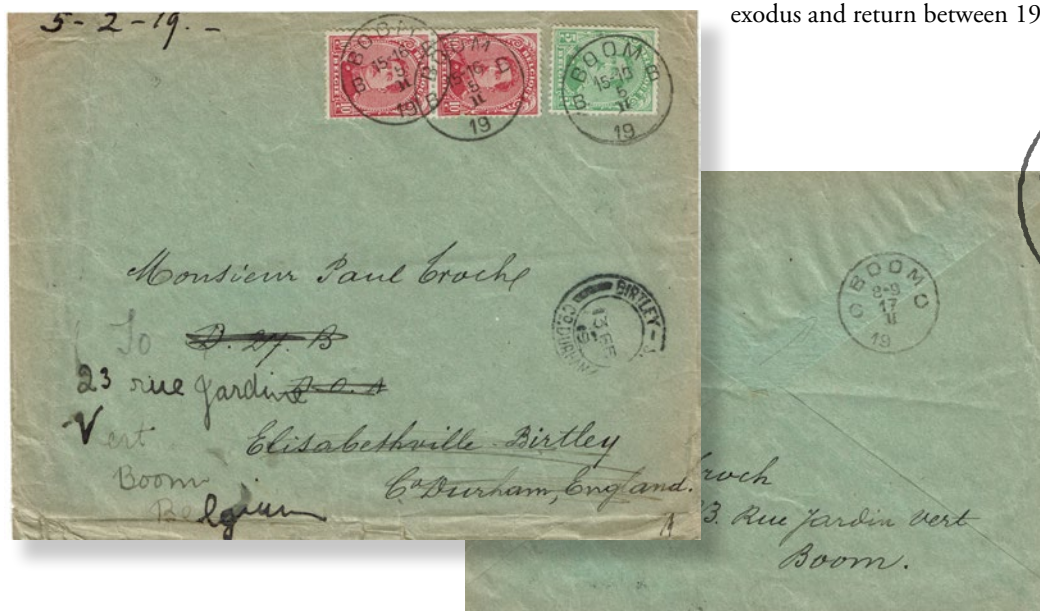 exodus and return between 19
5-2-19.-
BOOM
B B
15-16
5
II
19
BOOM
B B
15-16
5
II
19
BOOM
B B
15-16
5
II
19
BELGIQUE
10
10
5
Monsieur Paul Croche
To D. 27. B
23 rue Jardin
Vert Elisabethville Birtley
Boom Co Durham, England.
Belgium
BIRTLEY-
CO. DURHAM
13 FE
19
BOOM
C C
8-9
17
II
19
roch
3. Rue Jardin Vert
Boom.